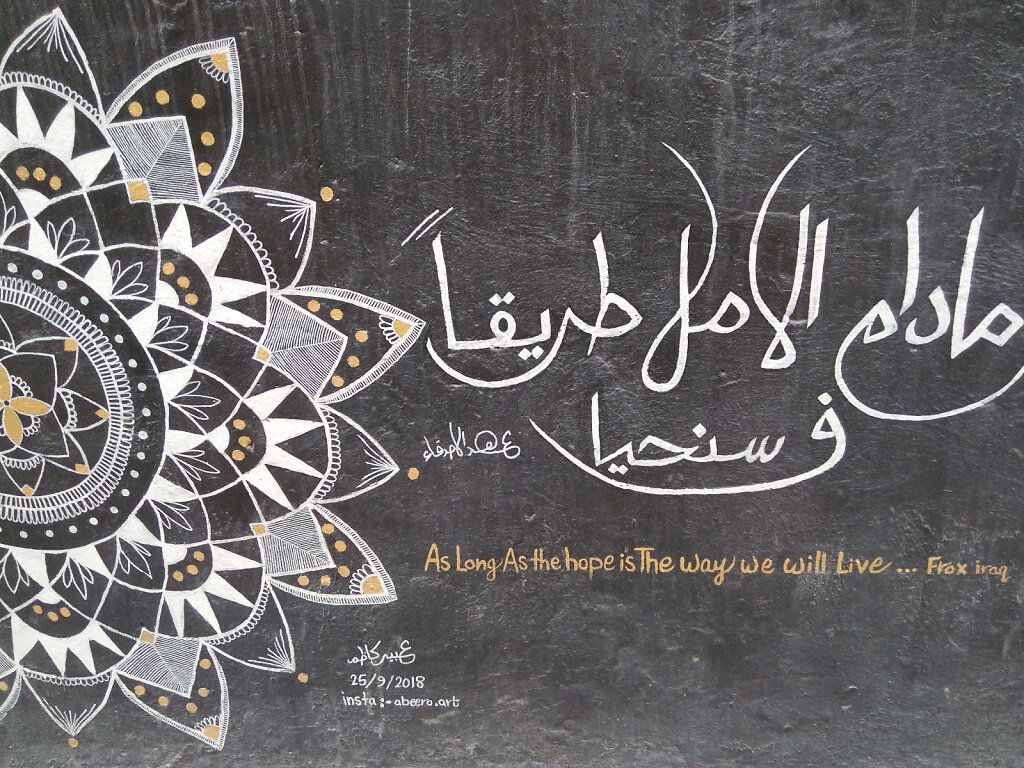 مادام الامل طريقاً
ف سنحيا
As Long As the hope is The way we will Live ... Frox iraq
عبير كاظم
25/9/2018
insta :- abeero.art